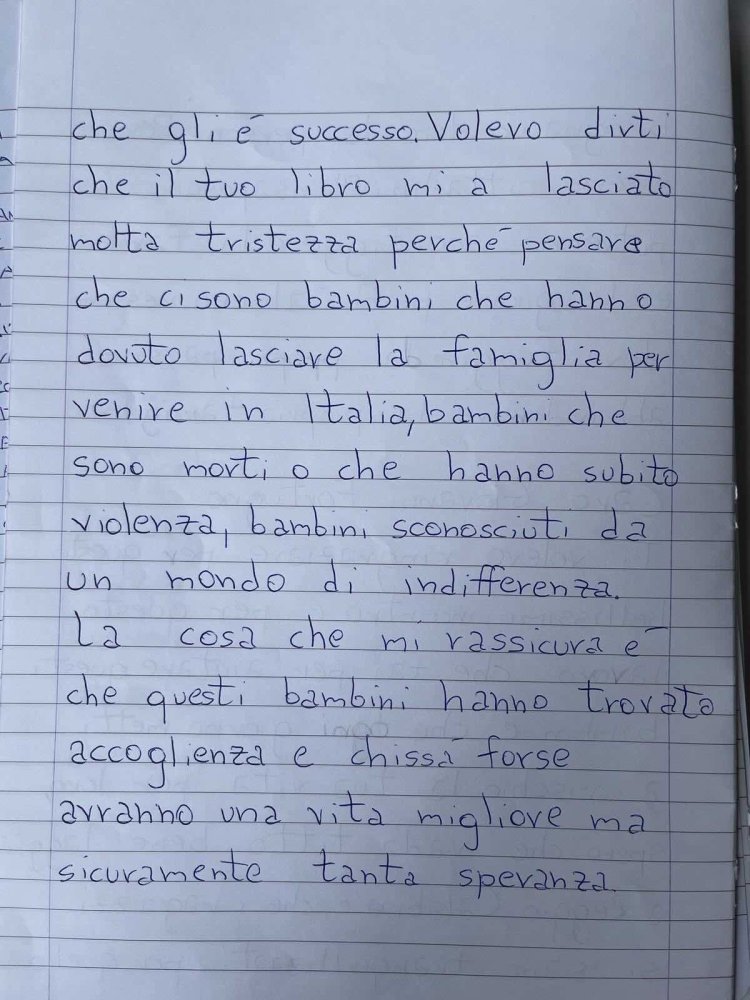 che gli é successo. Volevo dirti
che il tuo libro mi a lasciato
molta tristezza perché pensare
che ci sono bambini che hanno
dovuto lasciare la famiglia per
venire in Italia, bambini che
sono morti o che hanno subito
violenza, bambini sconosciuti da
un mondo di indifferenza.
La cosa che mi rassicura é
che questi bambini hanno trovato
accoglienza e chissá forse
avranno una vita migliore ma
sicuramente tanta speranza.